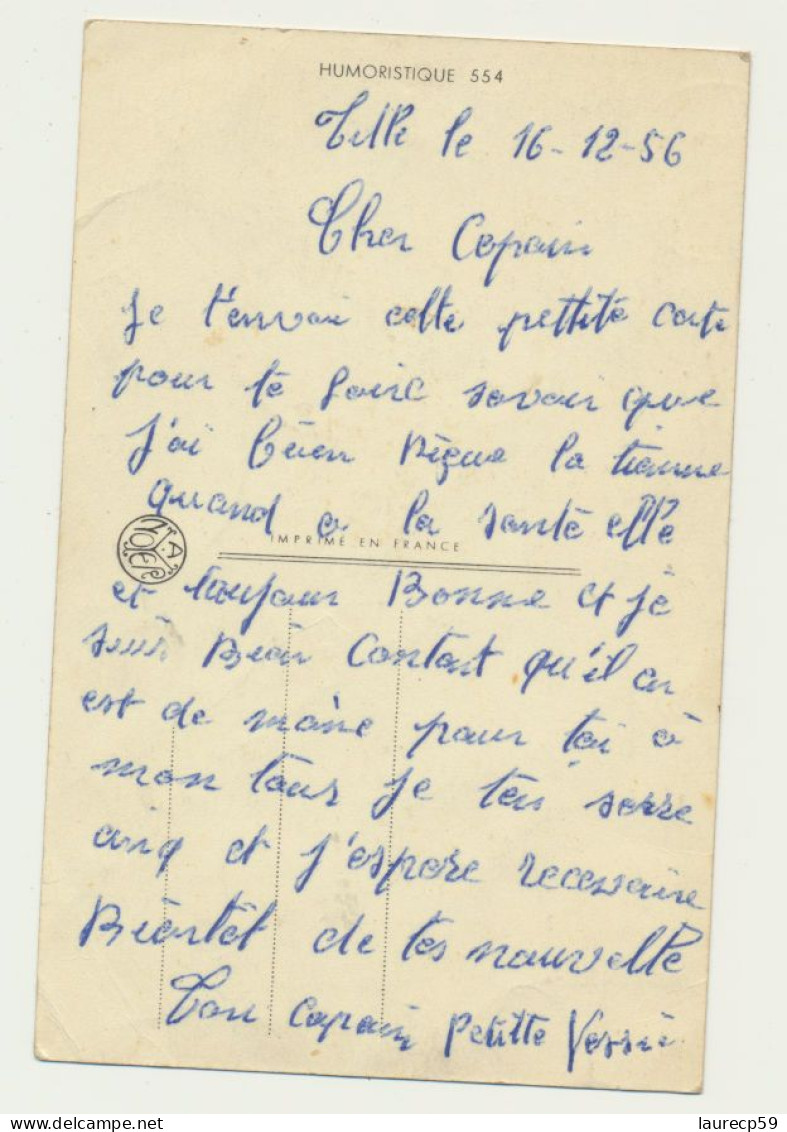 HUMORISTIQUE 554
Lille le 16-12-56
Cher Copain
Je t'envoi cette pettite carte
pour te faire savoir que
j'ai bien reçue la tienne
quand a la santé elle
IMPRIMÉ EN FRANCE
NOYER
et toujour Bonne et je
suis Bien Contant qu'il an
est de mème pour toi à
mon tour je t'en serre
cinq et j'espère recevoire
Bientôt de tes nouvelle
Ton Copain Petitte
laurecp59